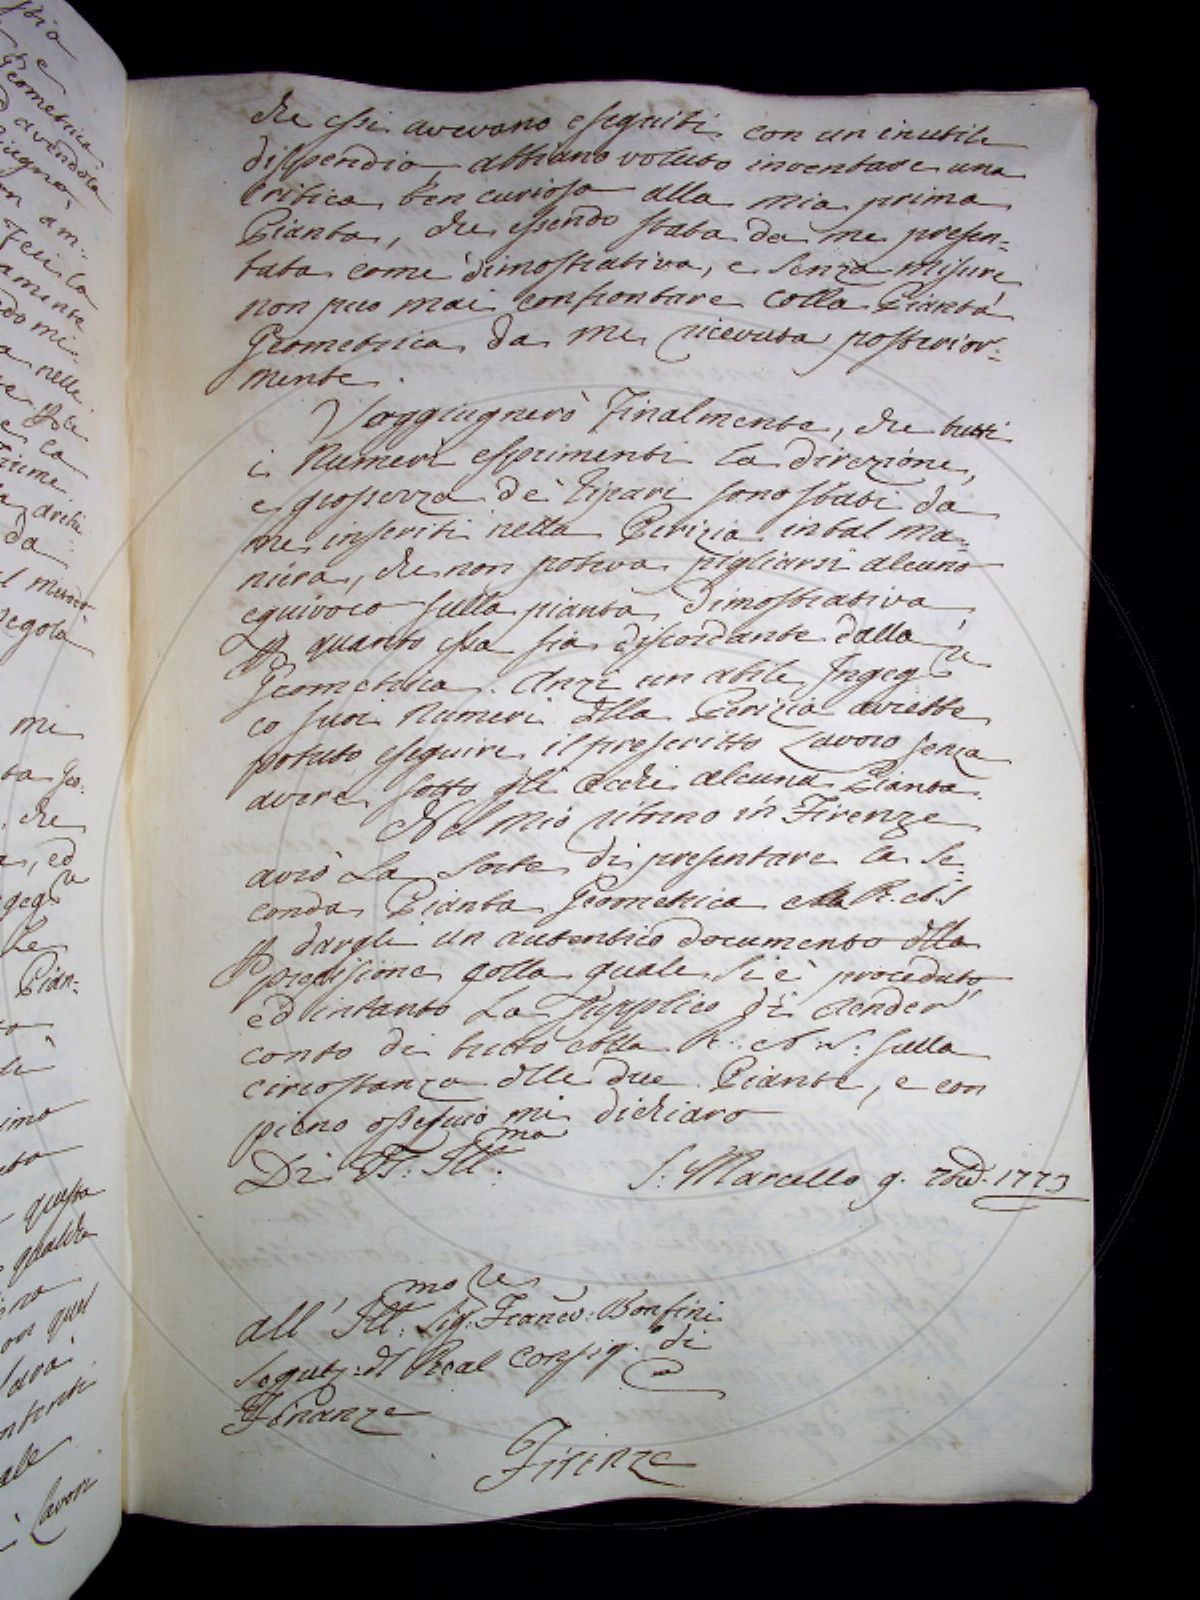 che essi avevano eseguiti con un inutile
dispendio, abbiano voluto inventare una
Critica ben curiosa alla mia prima
Pianta, che essendo stata da me presen-
tata come dimostrativa, e senza misure
non può mai confrontare colla Pianta
Geometrica da me ricevuta posterior-
mente.
Soggiugnerò Finalmente, che tutti
i Numeri esprimenti la direzione,
e grossezza de' Ripari sono stati da
me inseriti nella Perizia in tal ma-
niera, che non poteva pigliarsi alcuno
equivoco sulla pianta dimostrativa
p quanto essa sia discordante dalla
Geometrica. Anzi un abile Ingeg.re
co suoi Numeri dlla Perizia avrebbe
potuto eseguire il prescritto Lavoro senza
avere sotto gli occhi alcuna Pianta.
Nel mio ritorno in Firenze
avrò La Sorte di presentare la Se-
conda Pianta Geometrica alla R.A.S
p dargli un autentico documento dlla
precisione colla quale si è proceduto
ed intanto La Supplico di render
conto di tutto alla R: A: S: sulla
circostanza dlle due Piante, e con
pieno ossequio mi dichiaro
Di VS: Ill:ma
S: Marcello 9. 1773
all' Ill:mo Sig:re Franco: Bonfini
Segret: dl Real Consig.o di
Finanze
Firenze
me
che
ed
Pian-
questa
qualche
Lavori
Geometrica
avendola
nelle
la
da